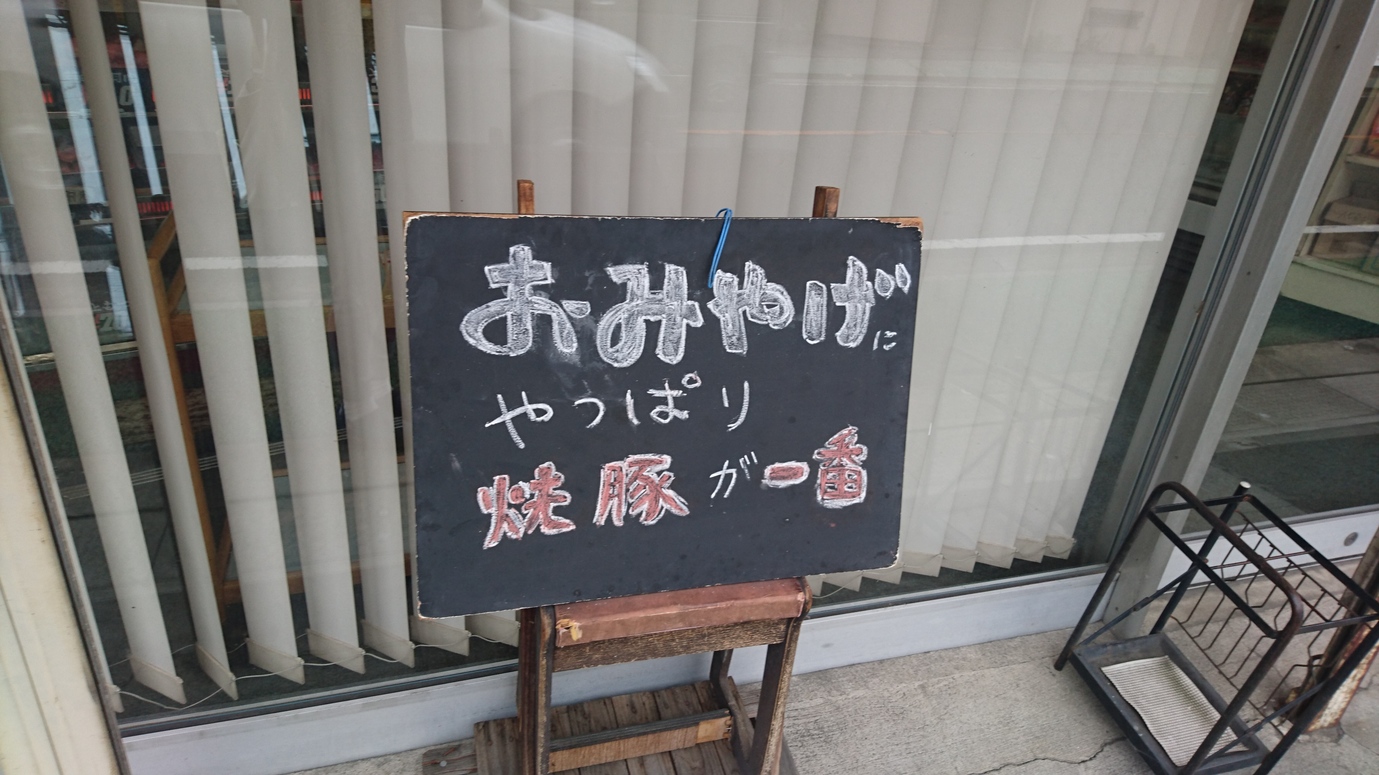 おみやげに
やっぱり
焼豚が一番